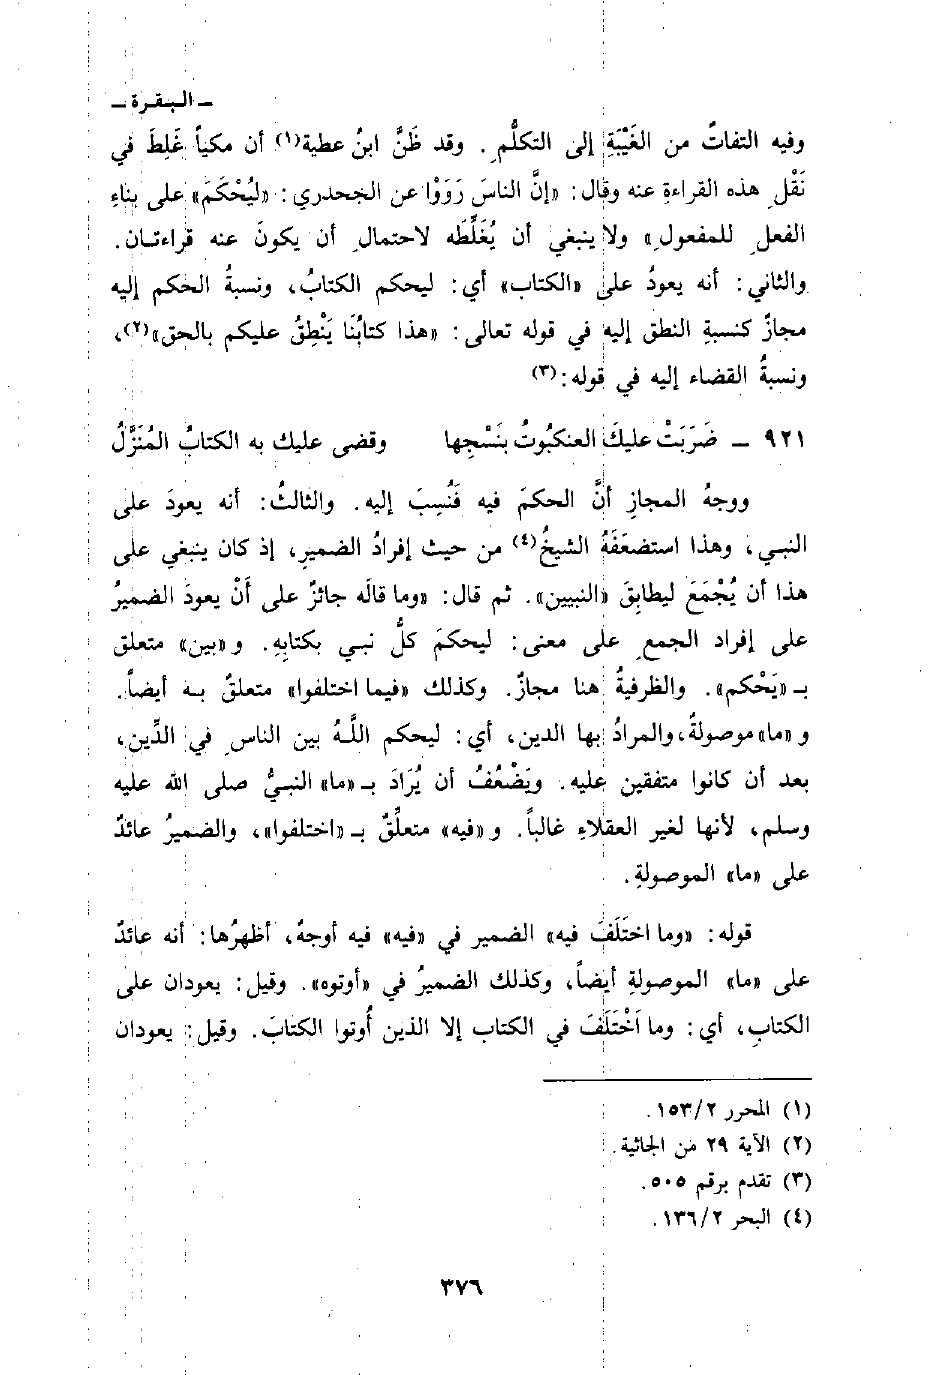 ـ البقرة ـ
وفيه التفاتٌ من الغَيْبَةِ إلى التكلُّمِ. وقد ظَنَّ ابنُ عطية(١) أن مكياً غَلِطَ في
نَقْلِ هذه القراءةِ عنه وقال: «إنَّ الناسَ رَوَوْا عن الجحدري: «لِيُحْكَمَ» على بناءِ
الفعلِ للمفعولِ» ولا ينبغي أن يُغَلِّطَه لاحتمالِ أن يكونَ عنه قراءتـان.
والثاني: أنه يعودُ على «الكتاب» أي: ليحكم الكتابُ، ونسبةُ الحكم إليه
مجازٌ كنسبةِ النطق إليه في قوله تعالى: «هذا كتابُنَا يَنْطِقُ عليكم بالحق»(٢)،
ونسبةُ القضاء إليه في قوله:(٣)
٩٢١ ـ ضَرَبَتْ عليكَ العنكبوتُ بنَسْجِها وقضى عليك به الكتابُ المُنَزَّلُ
ووجهُ المجازِ أنَّ الحكمَ فيه فَنُسِبَ إليه. والثالثُ: أنه يعودَ على
النبي، وهذا استضعَفَهُ الشيخُ(٤) من حيث إفرادُ الضميرِ، إذ كان ينبغي على
هذا أن يُجْمَعَ ليطابِقَ «النبيين». ثم قال: «وما قالَه جائزٌ على أَنْ يعودَ الضميرُ
على إفراد الجمعِ على معنى: ليحكمَ كلُّ نبي بكتابِهِ. و«بين» متعلق
بـ «يَحْكم». والظرفيةُ هنا مجازٌ. وكذلك «فيما اختلفوا» متعلقٌ بـه أيضاً.
و«ما» موصولةٌ، والمرادُ بها الدين، أي: ليحكم اللَّهُ بين الناسِ في الدِّين،
بعد أن كانوا متفقين عليه. ويَضْعُفُ أن يُرَادَ بـ «ما» النبيُّ صلى الله عليه
وسلم، لأنها لغير العقلاءِ غالباً. و«فيه» متعلِّقٌ بـ «اختلفوا»، والضميرُ عائدٌ
على «ما» الموصولةِ.
قوله: «وما اختَلَفَ فيه» الضمير في «فيه» فيه أوجهٌ، أظهرُها: أنه عائدٌ
على «ما» الموصولةِ أيضاً، وكذلك الضميرُ في «أوتوه». وقيل: يعودان على
الكتابِ، أي: وما اخْتَلَفَ في الكتاب إلا الذين أُوتوا الكتابَ. وقيل: يعودان
(١) المحرر ١٥٣/٢.
(٢) الآية ٢٩ من الجاثية.
(٣) تقدم برقم ٥٠٥.
(٤) البحر ١٣٦/٢.
٣٧٦